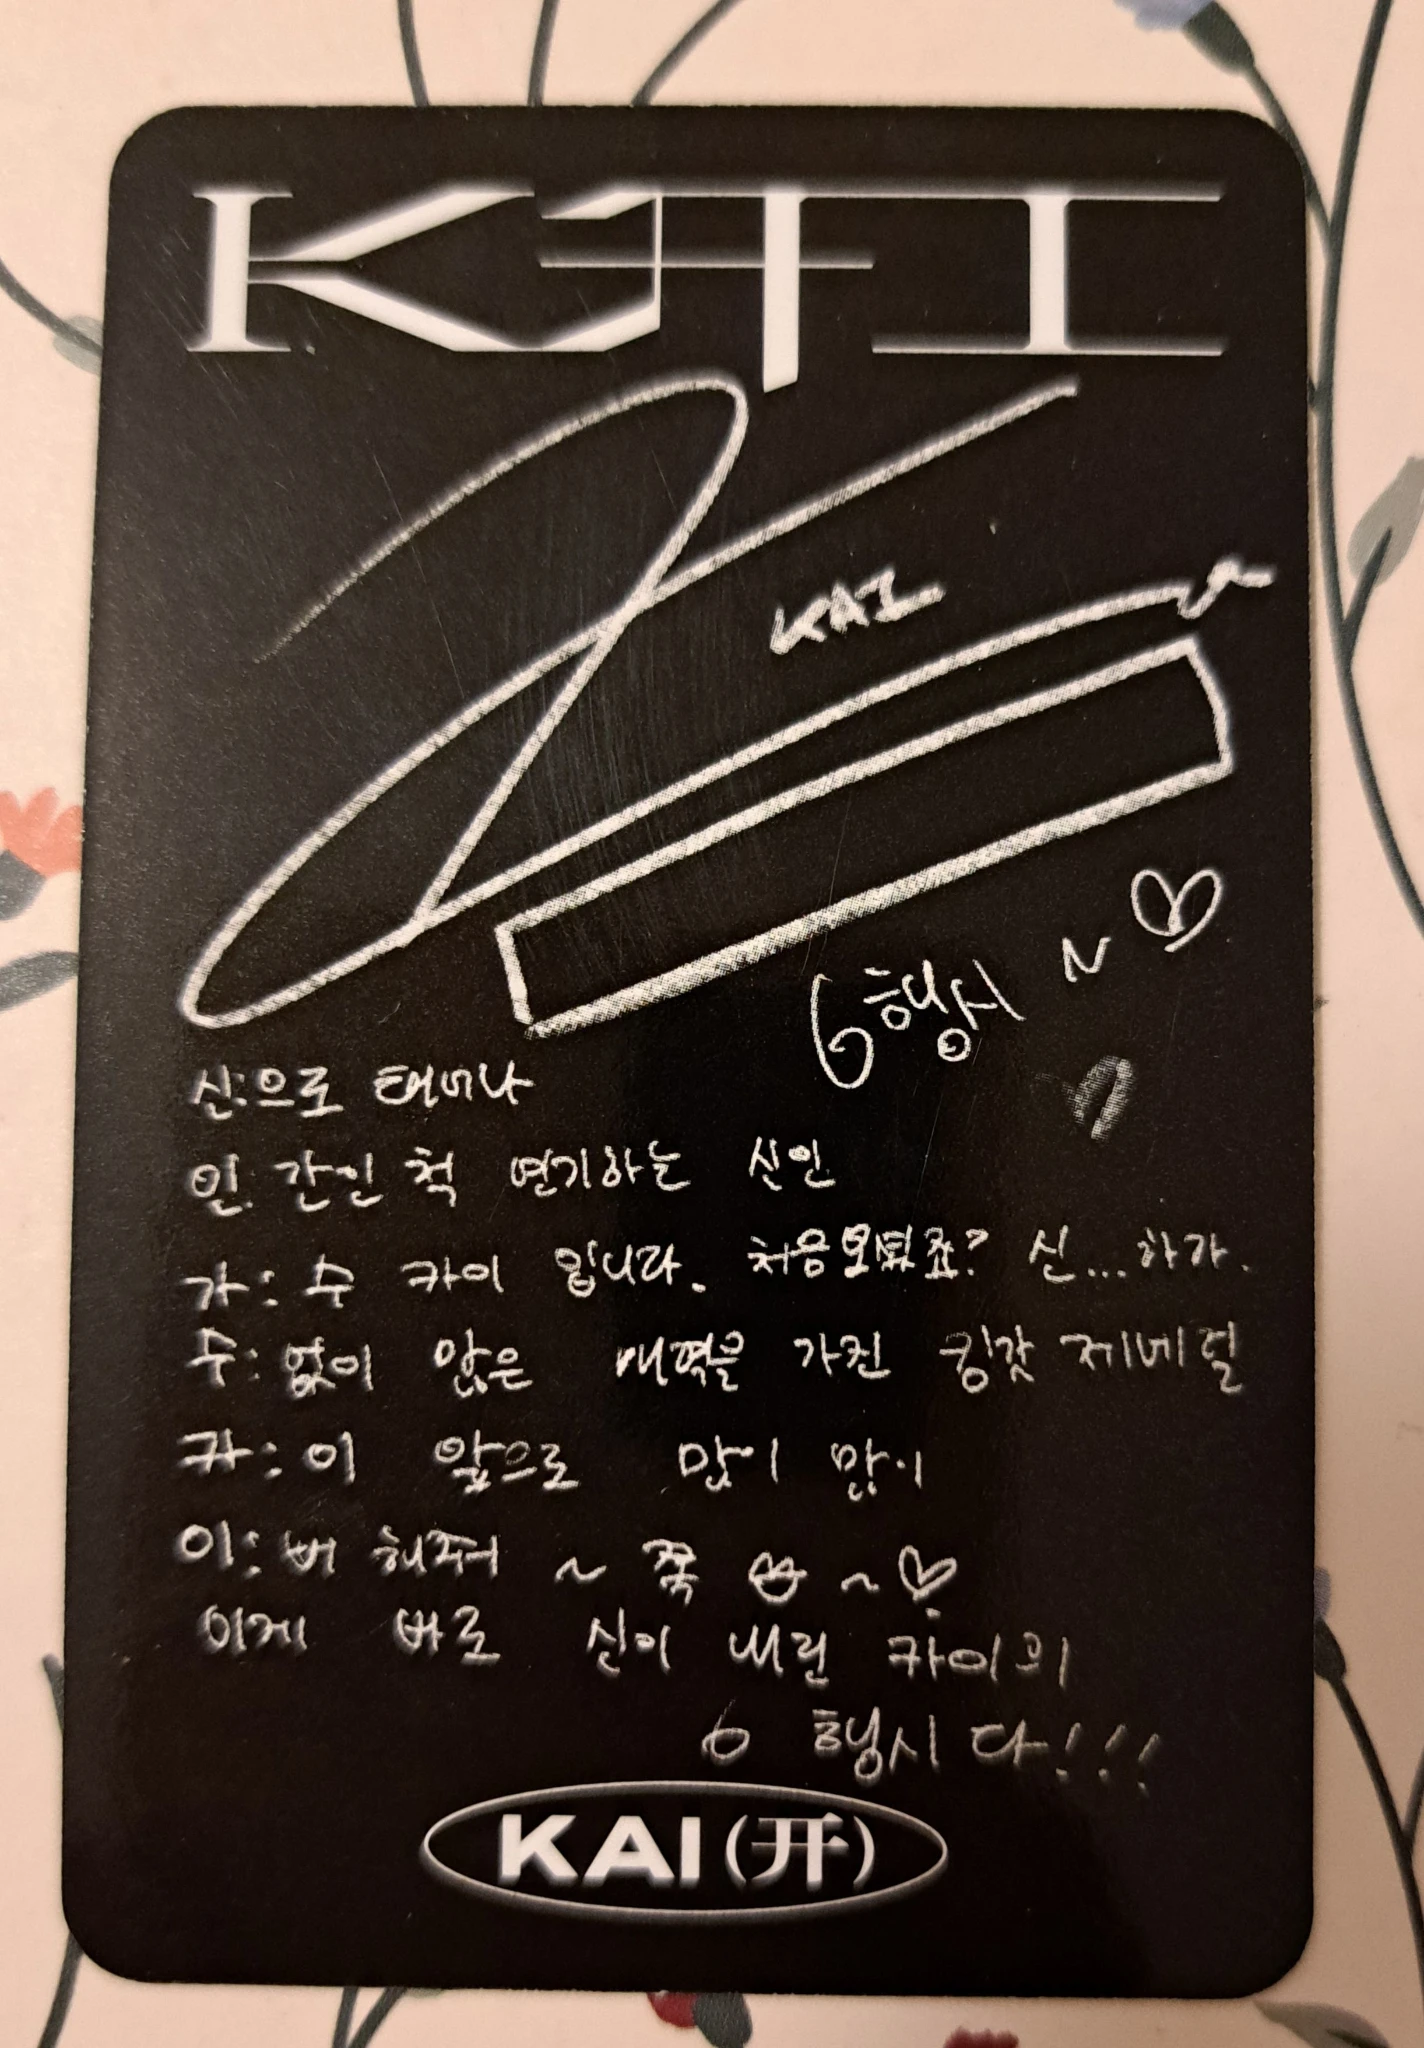 KAI
KAI
6행시 ~ ♡
신:으로 태어나
인: 간인 척 연기하는 신인
가: 수 카이 입니다. 처음 뵙죠? 신...하가.
수: 없이 많은 매력을 가진 킹갓 제네럴
카: 이 앞으로 많이 많이
이: 뻐 해줘 ~ 쪽 ~ ♡
이게 바로 신이 내린 카이의
6 행시다!!!
KAI (开)